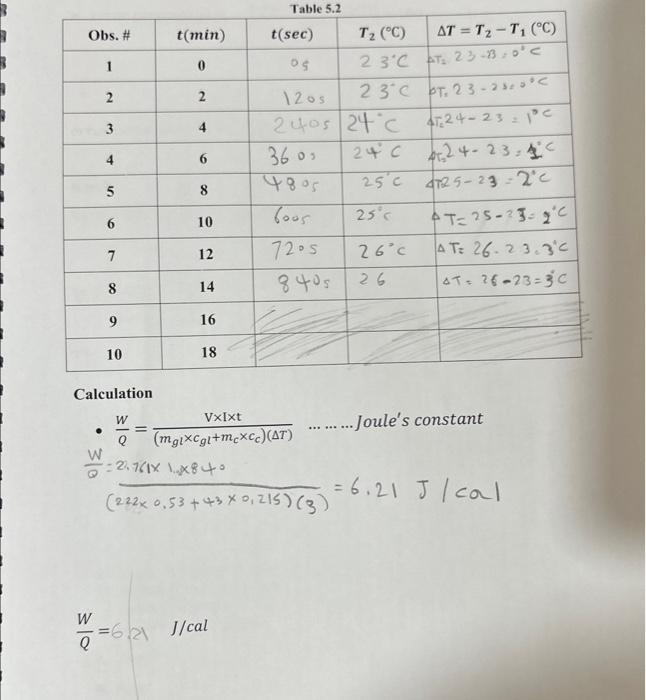 Table 5.2
Obs. # t(min) t(sec) T₂ (°C) ΔT = T₂ − T₁ (°C)
1 0 0s 23°C ΔT= 23-23=0°C
2 2 120s 23°C ΔT= 23-23=0°C
3 4 240s 24°C ΔT=24-23=1°C
4 6 360s 24°C ΔT=24-23=1°C
5 8 480s 25°C ΔT25-23=2°C
6 10 600s 25°C ΔT=25-23=2°C
7 12 720s 26°C ΔT= 26-23=3°C
8 14 840s 26 ΔT= 26-23=3°C
9 16
10 18
Calculation
• W/Q = V×I×t / (m_gl×c_gl+m_c×c_c)(ΔT) ………Joule's constant
W/Q = × 840 / (222×0.53+43×0,215)(3) = 6.21 J/cal
W/Q =6.21 J/cal